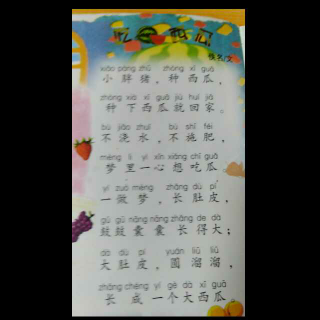 xiǎo pàng zhū zhòng xī guā
小胖猪，种西瓜，
zhòng xià xī guā jiù huí jiā
种下西瓜就回家。
bù jiāo zhuǐ bù shī féi
不浇水，不施肥，
mèng lǐ yì xīn xiǎng chī guā
梦里一心想吃瓜。
yí zuò mèng zhǎng dù pí
一做梦，长肚皮，
gǔ gǔ nāng nāng zhǎng de dà
鼓鼓囊囊长得大；
dà dù pí yuán liū liū
大肚皮，圆溜溜，
zhǎng chéng yí gè dà xī guā
长成一个大西瓜。